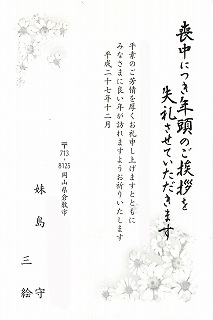 喪中につき年頭のご挨拶を
失礼させていただきます
平素のご芳情を厚くお礼申し上げますとともに
みなさまに良い年が訪れますようお祈りいたします
平成二十七年十二月
〒713-8125 岡山県倉敷市
妹島 三守
絵